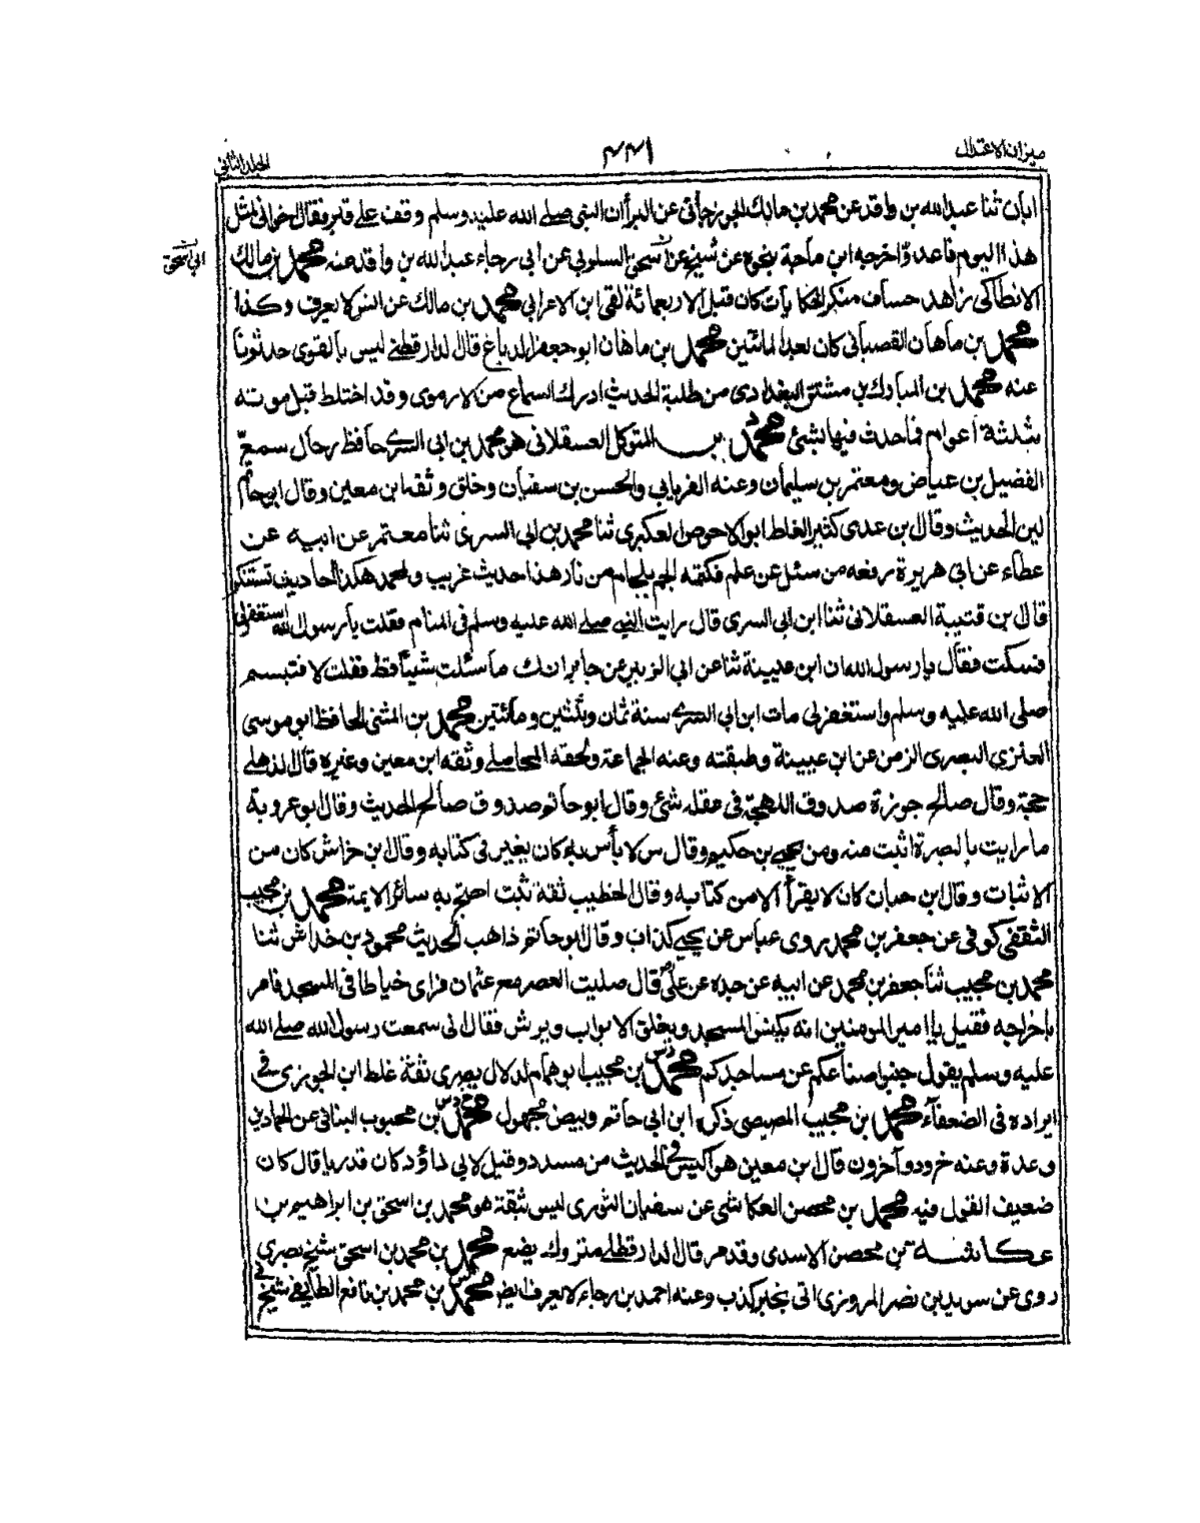 ميزان الاعتدال
٤٤١
الجلد الثاني
ابان ثنا عبد الله بن واقد عن محمد بن مالك الجوزجاني عن البرأ ان النبي صلے الله عليه وسلم وقف علے قبر فقال اخواني لمثل
هذا اليوم فاعدوا اخرجه ابن ماجة بنحوه عن شيخ عن اسحق السلولي عن ابي رجاء عبد الله بن واقد عنه محمد بن مالك
ابي اسحق
الانطاكي زاهد حساف منكر الحكايات كان قبل الاربعمائة لقي ابن الاعرابي محمد بن مالك عن انس لا يعرف وكذا
محمد بن ماهان القصباني كان بعد المائتين محمد بن ماهان ابو جعفر الدباغ قال الدارقطنے ليس بالقوى حدثونا
عنه محمد بن المبارك بن مشتق البغدادى من طلبة الحديث ادرك السماع من الارموى وقد اختلط قبل موته
بثلثة اعوام فما حدث فيها بشئ محمد بن المتوكل العسقلاني هو محمد بن ابي السرے حافظ رحال سمع
الفضيل بن عياض ومعتمر بن سليمان وعنه الفريابي والحسن بن سفيان وخلق وثقه ابن معين وقال ابو حاتم
لين الحديث وقال بن عدى كثير الغلط ابو الاحوص العكبرى ثنا محمد بن ابي السرى ثنا معتمر عن ابيه عن
عطاء عن ابي هريرة رفعه من سئل عن علم فكتمه الجم بلجام من نار هذا حديث غريب ولمحمد هكذا احاديث تستنكر
قال بن قتيبة العسقلاني ثنا ابن ابي السرى قال رايت النبي صلے الله عليه وسلم في المنام فقلت يا رسول الله استغفر لي
فسكت فقال يا رسول الله ان ابن عيينة ثنا عن ابي الزبير عن جابر انك ما سئلت شيئا قط فقلت لا فتبسم
صلى الله عليه وسلم واستغفر لي مات ابن ابي السرے سنة ثمان وثلثين ومائتين محمد بن المثنى الحافظ ابو موسى
العنزي البصرى الزمن عن ابن عيينة وطبقته وعنه الجماعة ولحقه المحاملے وثقه ابن معين وغيره قال الذهلے
حجة وقال صالح جزرة صدوق اللهجة في عقله شئ وقال ابو حاتم صدوق صالح الحديث وقال ابو عروبة
ما رايت بالبصرة اثبت منه ومن يحيے بن حكيم وقال س لا باس به كان يغير في كتابه وقال بن خراش كان من
الاثبات وقال ابن حبان كان لا يقرأ الا من كتابه وقال الخطيب ثقة ثبت احتج به سائر الايمة محمد بن مجيب
الثقفي كوفي عن جعفر بن محمد روى عباس عن يحيے كذاب وقال ابو حاتم ذاهب الحديث محمود بن خداش ثنا
محمد بن مجيب ثنا جعفر بن محمد عن ابيه عن جده عن علي قال صليت العصر مع عثمان فراى خياطا في المسجد فامر
باخراجه فقيل يا امير المومنين انه يكنس المسجد ويغلق الابواب ويرش فقال اني سمعت رسول الله صلے الله
عليه وسلم يقول جنبوا صناعكم عن مساجدكم محمد بن مجيب ابو همام الدلال بصرى ثقة غلط ابن الجوزى في
ايراده في الضعفاء محمد بن مجيب المصيصى ذكره ابن ابي حاتم وبيض مجهول محمد بن محبوب البناني عن الحمادين
وعدة وعنه خ د و و آخرون قال بن معين هو اكيس في الحديث من مسدد وقيل لابي داؤد كان قدريا قال كان
ضعيف القول فيه محمد بن محصن العكاشي عن سفيان الثورى ليس بثقة هو محمد بن اسحق بن ابراهيم بن
عكاشة بن محصن الاسدى وقد مر قال الدارقطنے متروك يضع محمد بن محمد بن اسحق شيخ بصرى
روى عن سويد بن نصر المروزى اتى بخبر كذب وعنه احمد بن رجاء لا يعرف ايض محمد بن محمد بن نافع الطايفي شيخ